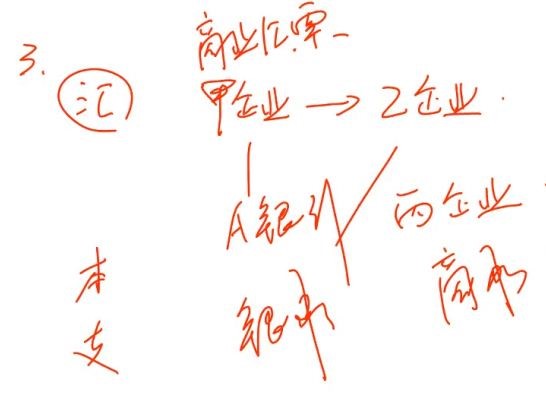 3.
商业汇票
汇 甲企业 → 乙企业
A银行 丙企业
本 银承 商承
支